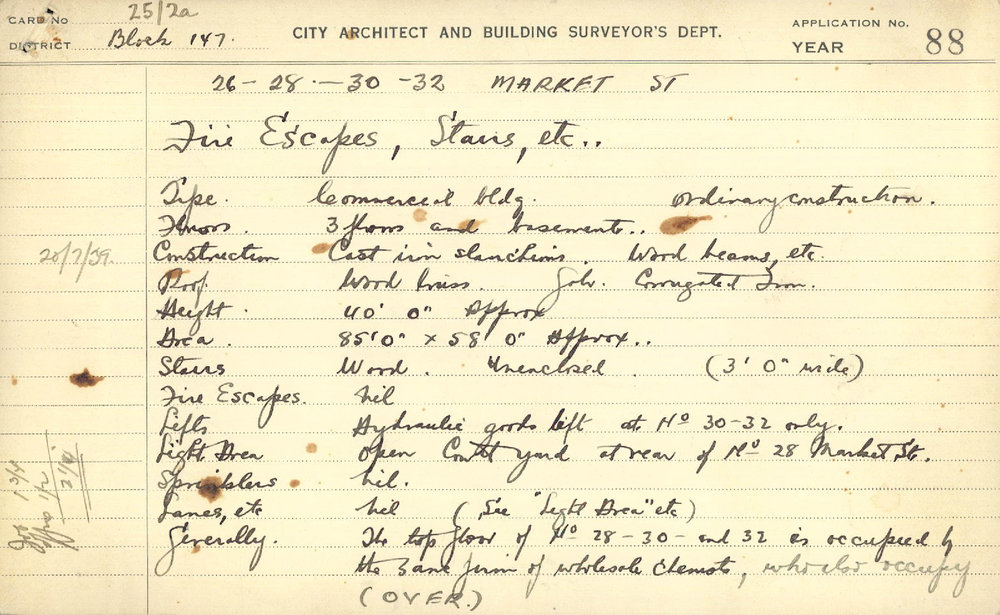 CARD No 25/2a
DISTRICT Block 147.
CITY ARCHITECT AND BUILDING SURVEYOR'S DEPT.
APPLICATION No.
YEAR 88
26 - 28 - 30 - 32 MARKET ST
Fire Escapes, Stairs, etc..
Type. Commercial bldg. ordinary construction.
Floors. 3 floors and basements..
20/7/39. Construction Cast iron stanchions. Wood beams, etc.
Roof. Wood truss. Galv. Corrugated Iron.
Height. 40' 0" Approx
Area. 85'0" x 58' 0" Approx..
Stairs Wood. Unenclosed. (3' 0" wide)
Fire Escapes. nil
Lifts Hydraulic goods lift at No 30-32 only.
Light Area Open Court yard at rear of No 28 Market St.
Sprinklers nil.
Lanes, etc nil (See "Light Area" etc)
Generally. The top floor of No 28-30- and 32 is occupied by
the same firm of wholesale chemists, who also occupy
(OVER.)
1 3/4
1/2
2 1/4